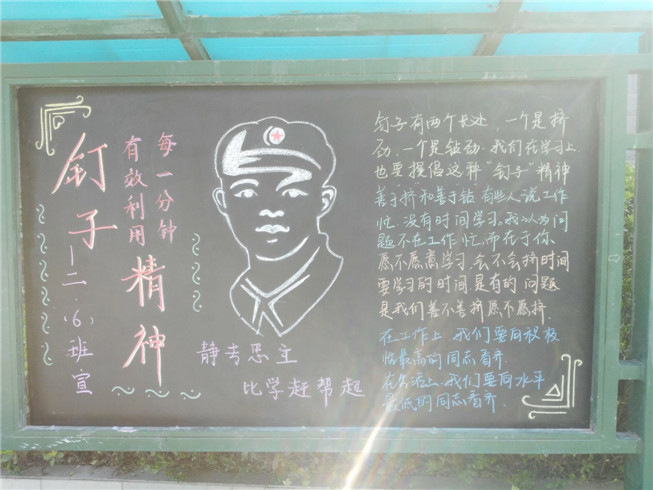 钉子
精神
每一分钟
有效利用
二.(6)班宣
静专思主
比学赶帮超
钉子有两个长处,一个是挤
劲,一个是钻劲.我们在学习上
也要提倡这种"钉子"精神
善于挤和善于钻.有些人说工作
忙.没有时间学习.我认为问
题不在工作忙,而在于你
愿不愿意学习,会不会挤时间
要学习的时间是有的问题
是我们善不善挤愿不愿挤.
在工作上,我们要向积极
性最高的同志看齐
在生活上,我们要向水平
最低的同志看齐.